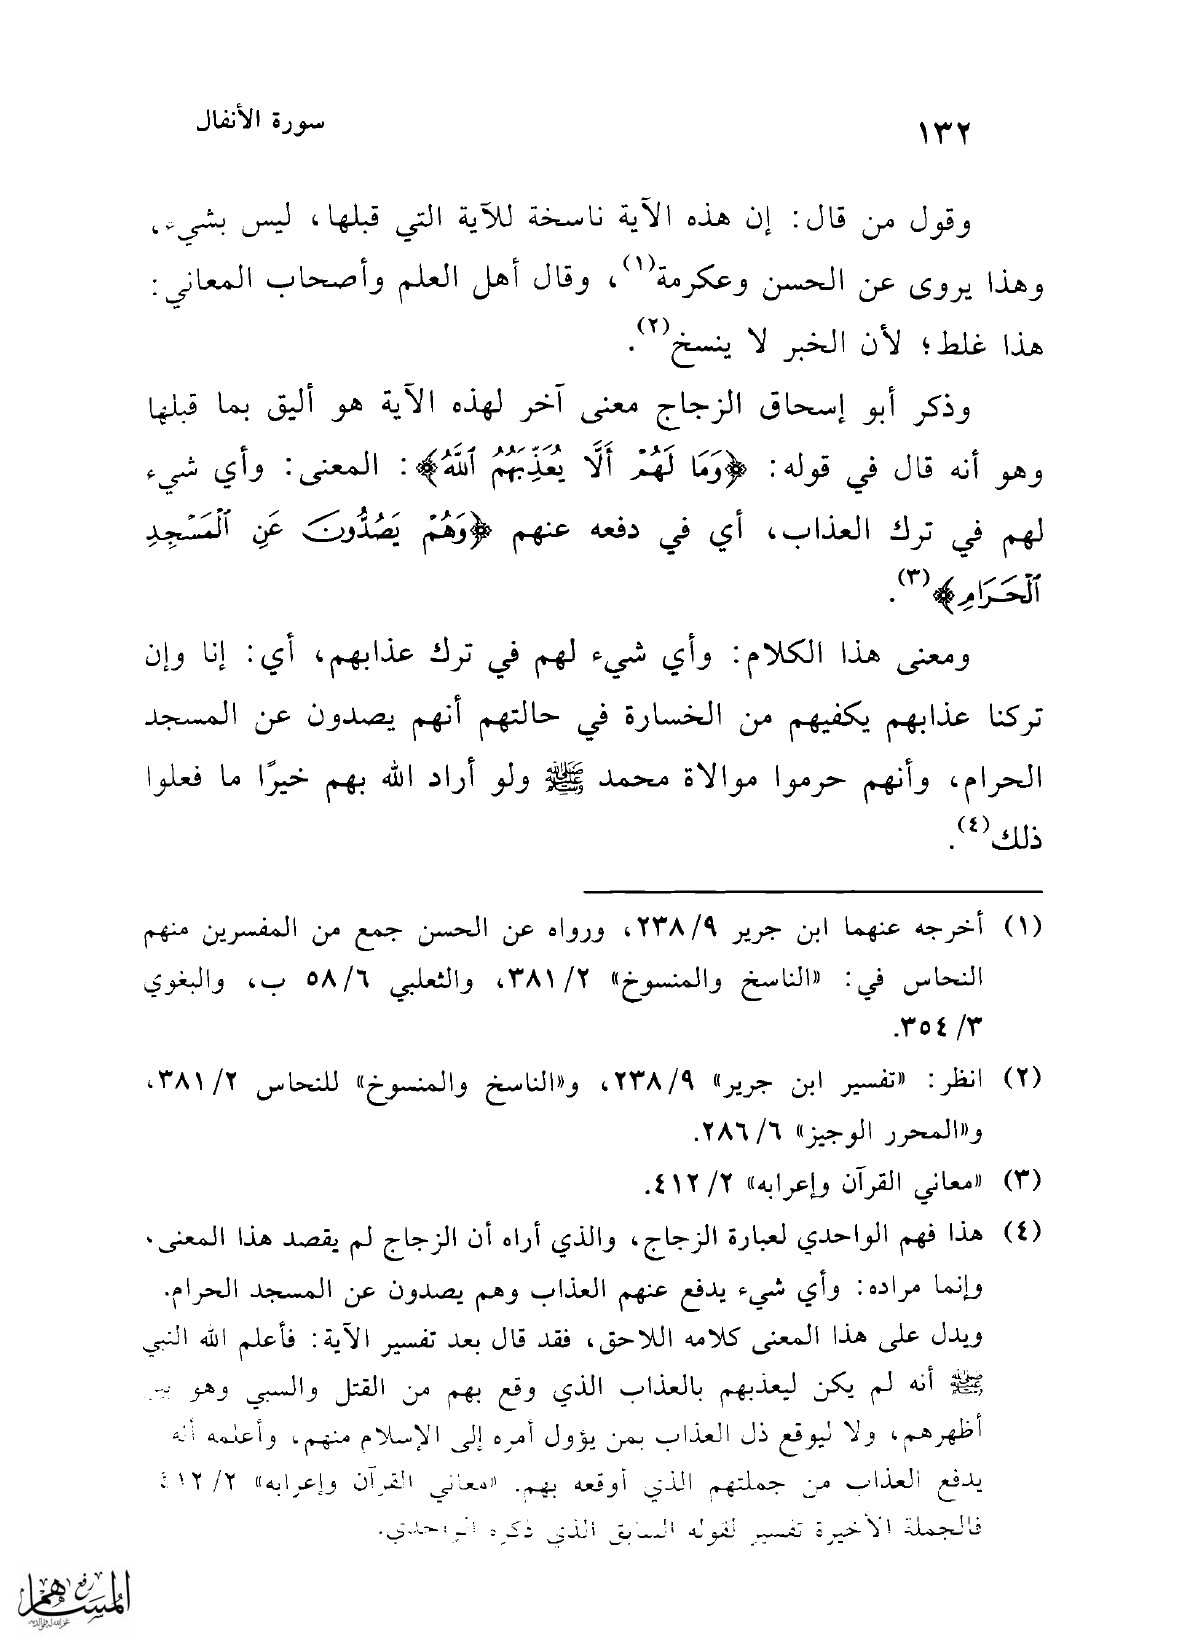 ١٣٢
سورة الأنفال
وقول من قال: إن هذه الآية ناسخة للآية التي قبلها، ليس بشيء،
وهذا يروى عن الحسن وعكرمة(١)، وقال أهل العلم وأصحاب المعاني:
هذا غلط؛ لأن الخبر لا ينسخ(٢).
وذكر أبو إسحاق الزجاج معنى آخر لهذه الآية هو أليق بما قبلها
وهو أنه قال في قوله: ﴿وَمَا لَهُمْ أَلَّا يُعَذِّبَهُمُ ٱللَّهُ﴾: المعنى: وأي شيء
لهم في ترك العذاب، أي في دفعه عنهم ﴿وَهُمْ يَصُدُّونَ عَنِ ٱلْمَسْجِدِ
ٱلْحَرَامِ﴾(٣).
ومعنى هذا الكلام: وأي شيء لهم في ترك عذابهم، أي: إنا وإن
تركنا عذابهم يكفيهم من الخسارة في حالتهم أنهم يصدون عن المسجد
الحرام، وأنهم حرموا موالاة محمد ﷺ ولو أراد الله بهم خيرًا ما فعلوا
ذلك(٤).
(١) أخرجه عنهما ابن جرير ٩/ ٢٣٨، ورواه عن الحسن جمع من المفسرين منهم
النحاس في: «الناسخ والمنسوخ» ٢/ ٣٨١، والثعلبي ٦/ ٥٨ ب، والبغوي
٣/ ٣٥٤.
(٢) انظر: «تفسير ابن جرير» ٩/ ٢٣٨، و«الناسخ والمنسوخ» للنحاس ٢/ ٣٨١،
و«المحرر الوجيز» ٦/ ٢٨٦.
(٣) «معاني القرآن وإعرابه» ٢/ ٤١٢.
(٤) هذا فهم الواحدي لعبارة الزجاج، والذي أراه أن الزجاج لم يقصد هذا المعنى،
وإنما مراده: وأي شيء يدفع عنهم العذاب وهم يصدون عن المسجد الحرام.
ويدل على هذا المعنى كلامه اللاحق، فقد قال بعد تفسير الآية: فأعلم الله النبي
ﷺ أنه لم يكن ليعذبهم بالعذاب الذي وقع بهم من القتل والسبي وهو بين
أظهرهم، ولا ليوقع ذل العذاب بمن يؤول أمره إلى الإسلام منهم، وأعلمه أنه
يدفع العذاب من جملتهم الذي أوقعه بهم. «معاني القرآن وإعرابه» ٢/ ٤١٢
فالجملة الأخيرة تفسير لقوله السابق الذي ذكره الواحدي.